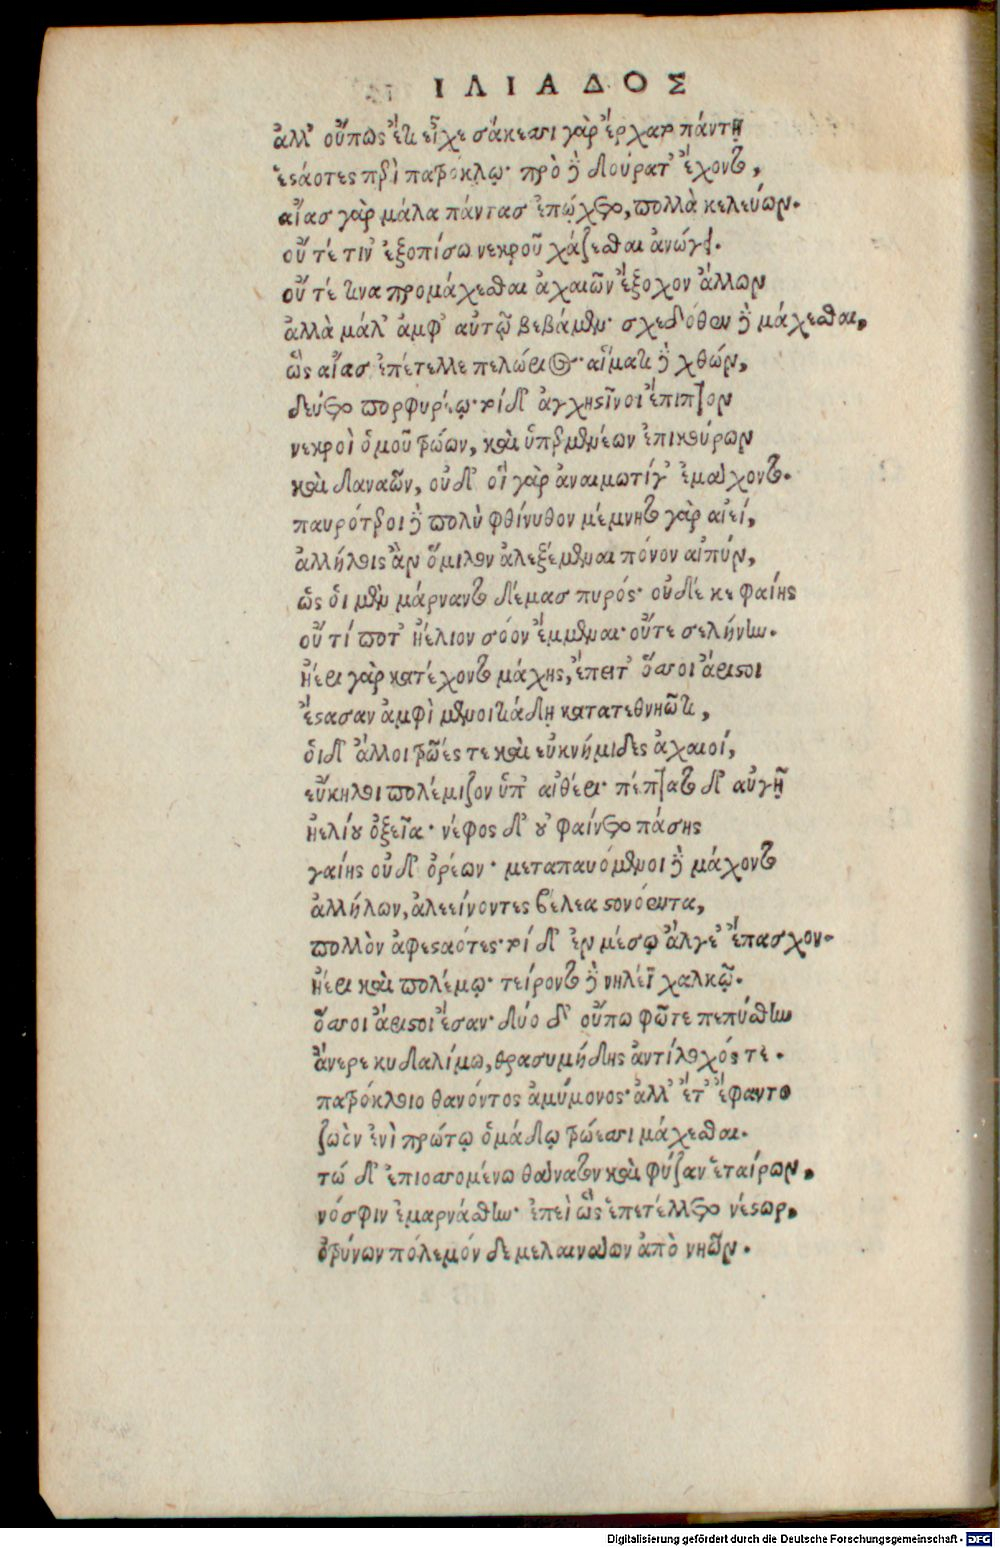 ΙΛΙΑΔΟΣ
ἀλλ' οὔπως ἔτι εἶχε σάκεσσι γὰρ ἔρχατ πάντῃ
ἑστάοτες περὶ πατρόκλῳ· πρὸ δὲ δούρατ' ἔχοντο,
αἴας γὰρ μάλα πάντας ἐπῴχετο, πολλὰ κελεύων.
οὔτέ τιν' ἐξοπίσω νεκροῦ χάζεσθαι ἀνώγει.
οὔτέ τινα προμάχεσθαι ἀχαιῶν ἔξοχον ἄλλων
ἀλλὰ μάλ' ἀμφ' αὐτῷ βεβάμεν· σχεδόθεν δὲ μάχεσθαι,
ὣς αἴας ἐπέτελλε πελώριος· αἵματι δὲ χθών,
δεύετο πορφυρέῳ· τοὶ δ' ἀγχηστῖνοι ἔπιπτον
νεκροὶ ὁμοῦ τρώων, καὶ ὑπερμενέων ἐπικούρων
καὶ δαναῶν, οὐδ' οἳ γὰρ ἀναιμωτίγ' ἐμάχοντο.
παυρότεροι δὲ πολὺ φθίνυθον μέμνηντο γὰρ αἰεί,
ἀλλήλοις ἂν ὅμιλον ἀλεξέμεναι πόνον αἰπύν,
ὣς ὁι μὲν μάρναντο δέμας πυρός· οὐδέ κε φαίης
οὔτί ποτ' ἠέλιον σόον ἔμμεναι· οὔτε σελήνην.
ἠέρι γὰρ κατέχοντο μάχης, ἔπειτ' ὅσσοι ἄριστοι
ἕστασαν ἀμφὶ μενοιτιάδῃ κατατεθνηῶτι,
ὁι δ' ἄλλοι τρῶές τε καὶ εὐκνήμιδες ἀχαιοί,
εὔκηλοι πολέμιζον ὑπ' αἰθέρι· πέπτατο δ' αὐγῇ
ἠελίου ὀξεῖα· νέφος δ' οὐ φαίνετο πάσης
γαίης οὐδ' ὀρέων· μεταπαυόμενοι δὲ μάχοντο
ἀλλήλων, ἀλεείνοντες βέλεα στονόεντα,
πολλὸν ἀφεσταότες· τοὶ δ' ἐν μέσῳ ἄλγε' ἔπασχον.
ἠέρι καὶ πολέμῳ· τείροντο δὲ νηλέϊ χαλκῷ.
ὅσσοι ἄριστοι ἔσαν· δύο δ' οὔπω φῶτε πεπύσθην
ἀνέρε κυδαλίμω, θρασυμήδης ἀντίλοχός τε.
πατρόκλοιο θανόντος ἀμύμονος· ἀλλ' ἔτ' ἔφαντο
ζωὸν ἐνὶ πρώτῳ ὁμάδῳ τρώεσσι μάχεσθαι.
τώ δ' ἐπιοσσομένω θάνατον καὶ φύζαν ἑταίρων,
νόσφιν ἐμαρνάσθην· ἐπεὶ ὣς ἐπετέλλετο νέστωρ,
ὀτρύνων πόλεμόν δε μελαινάων ἀπὸ νηῶν.
Digitalisierung gefördert durch die Deutsche Forschungsgemeinschaft - DFG